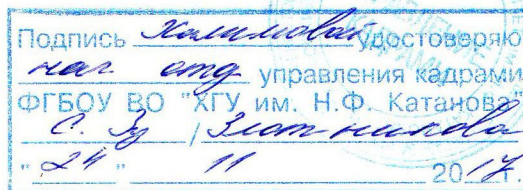 Подпись Халимовой удостоверяю
нач отд управления кадрами
ФГБОУ ВО "ХГУ им. Н.Ф. Катанова"
/ Злотникова
"24" 11 2017г.